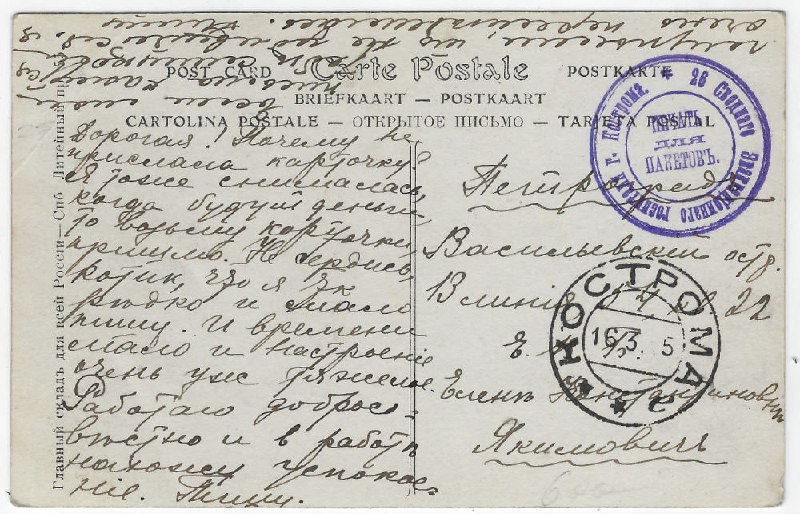 POST CARD Carte Postale POSTKARTE
BRIEFKAART — POSTKAART
CARTOLINA POSTALE — ОТКРЫТОЕ ПИСЬМО — TARJETA POSTAL
Дорогая! Почему не
прислала карточку?
Я тоже снималась,
когда будут деньги
то возьму карточки,
пришлю. Не сердись,
котик, что я так
рѣдко и мало
пишу. И времени
мало и настроеніе
очень уж тяжелое.
Работаю добросо-
вѣстно и в работѣ
нахожу успокое-
ніе. Пишу.
Петроградъ
Васильевский остр.
В линія
22
Е.
Еленѣ Константиновнѣ
Якимовичъ
Г. КОСТРОМА * 26 Своднаго Эвакуаціоннаго госпиталя
ПЕЧАТЬ
ДЛЯ
ПАКЕТОВЪ.
КОСТРОМА
16 3 5
Главный складъ для всей Россіи—Спб Литейный пр